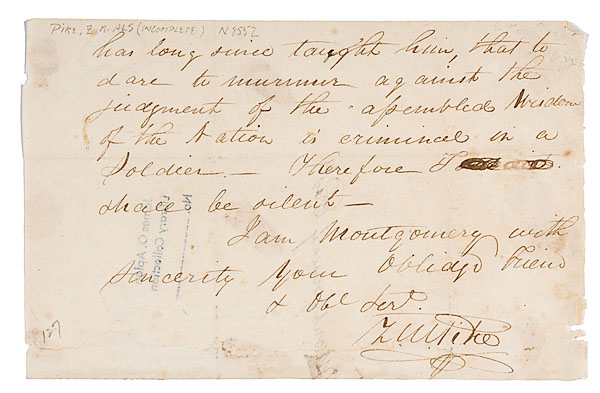 Pike, Z. M. ALS (INCOMPLETE) N 8552
has long since taught him, that to
dare to murmur against the
judgment of the assembled Wisdom
of the Nation is criminal in a
Soldier. — Therefore I
shall be silent —
I am Montgomery with
sincerity your Oblidg'd Friend
& Obt Sert.
Z M Pike
127
No.
Library
Collection
James O.